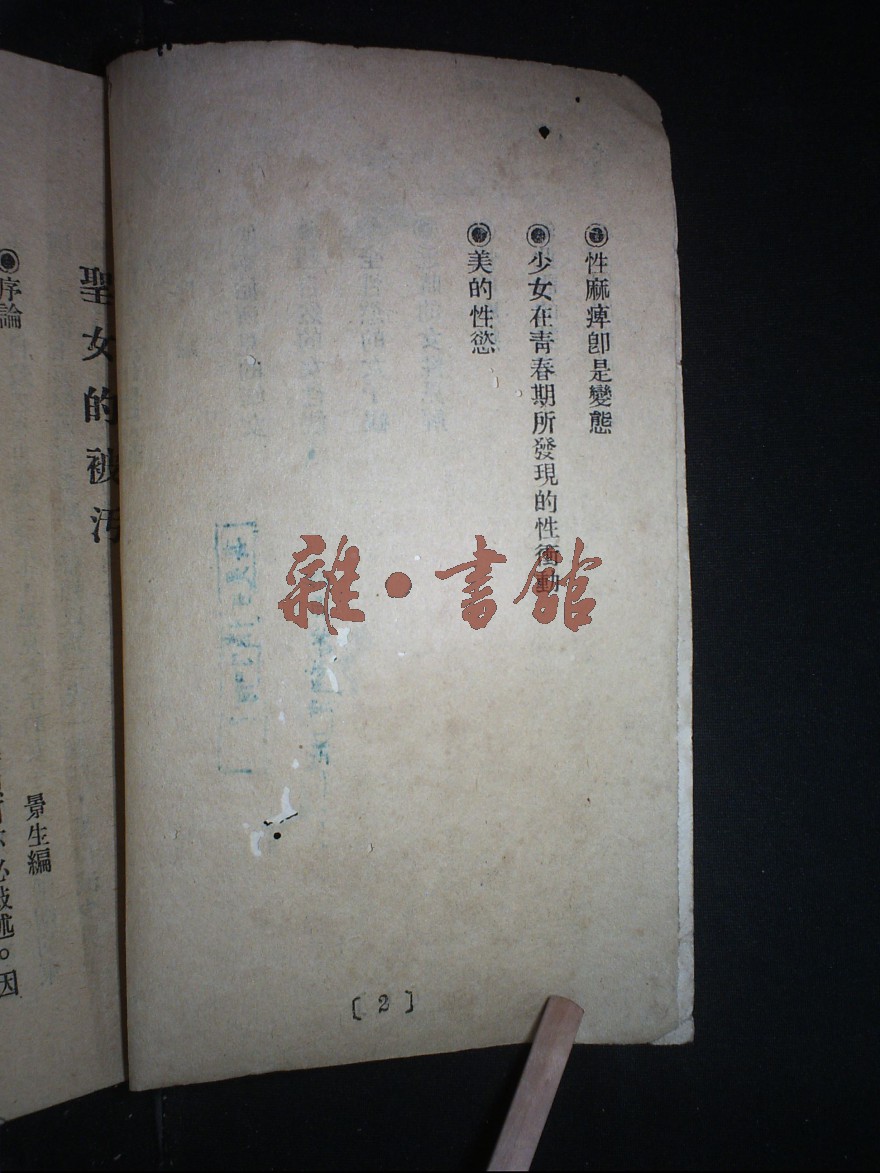 性麻痺卽是變態
少女在青春期所發現的性衝動
美的性慾
雜·書館
[2]
聖女的被汚
景生編
序論
必敍述。因